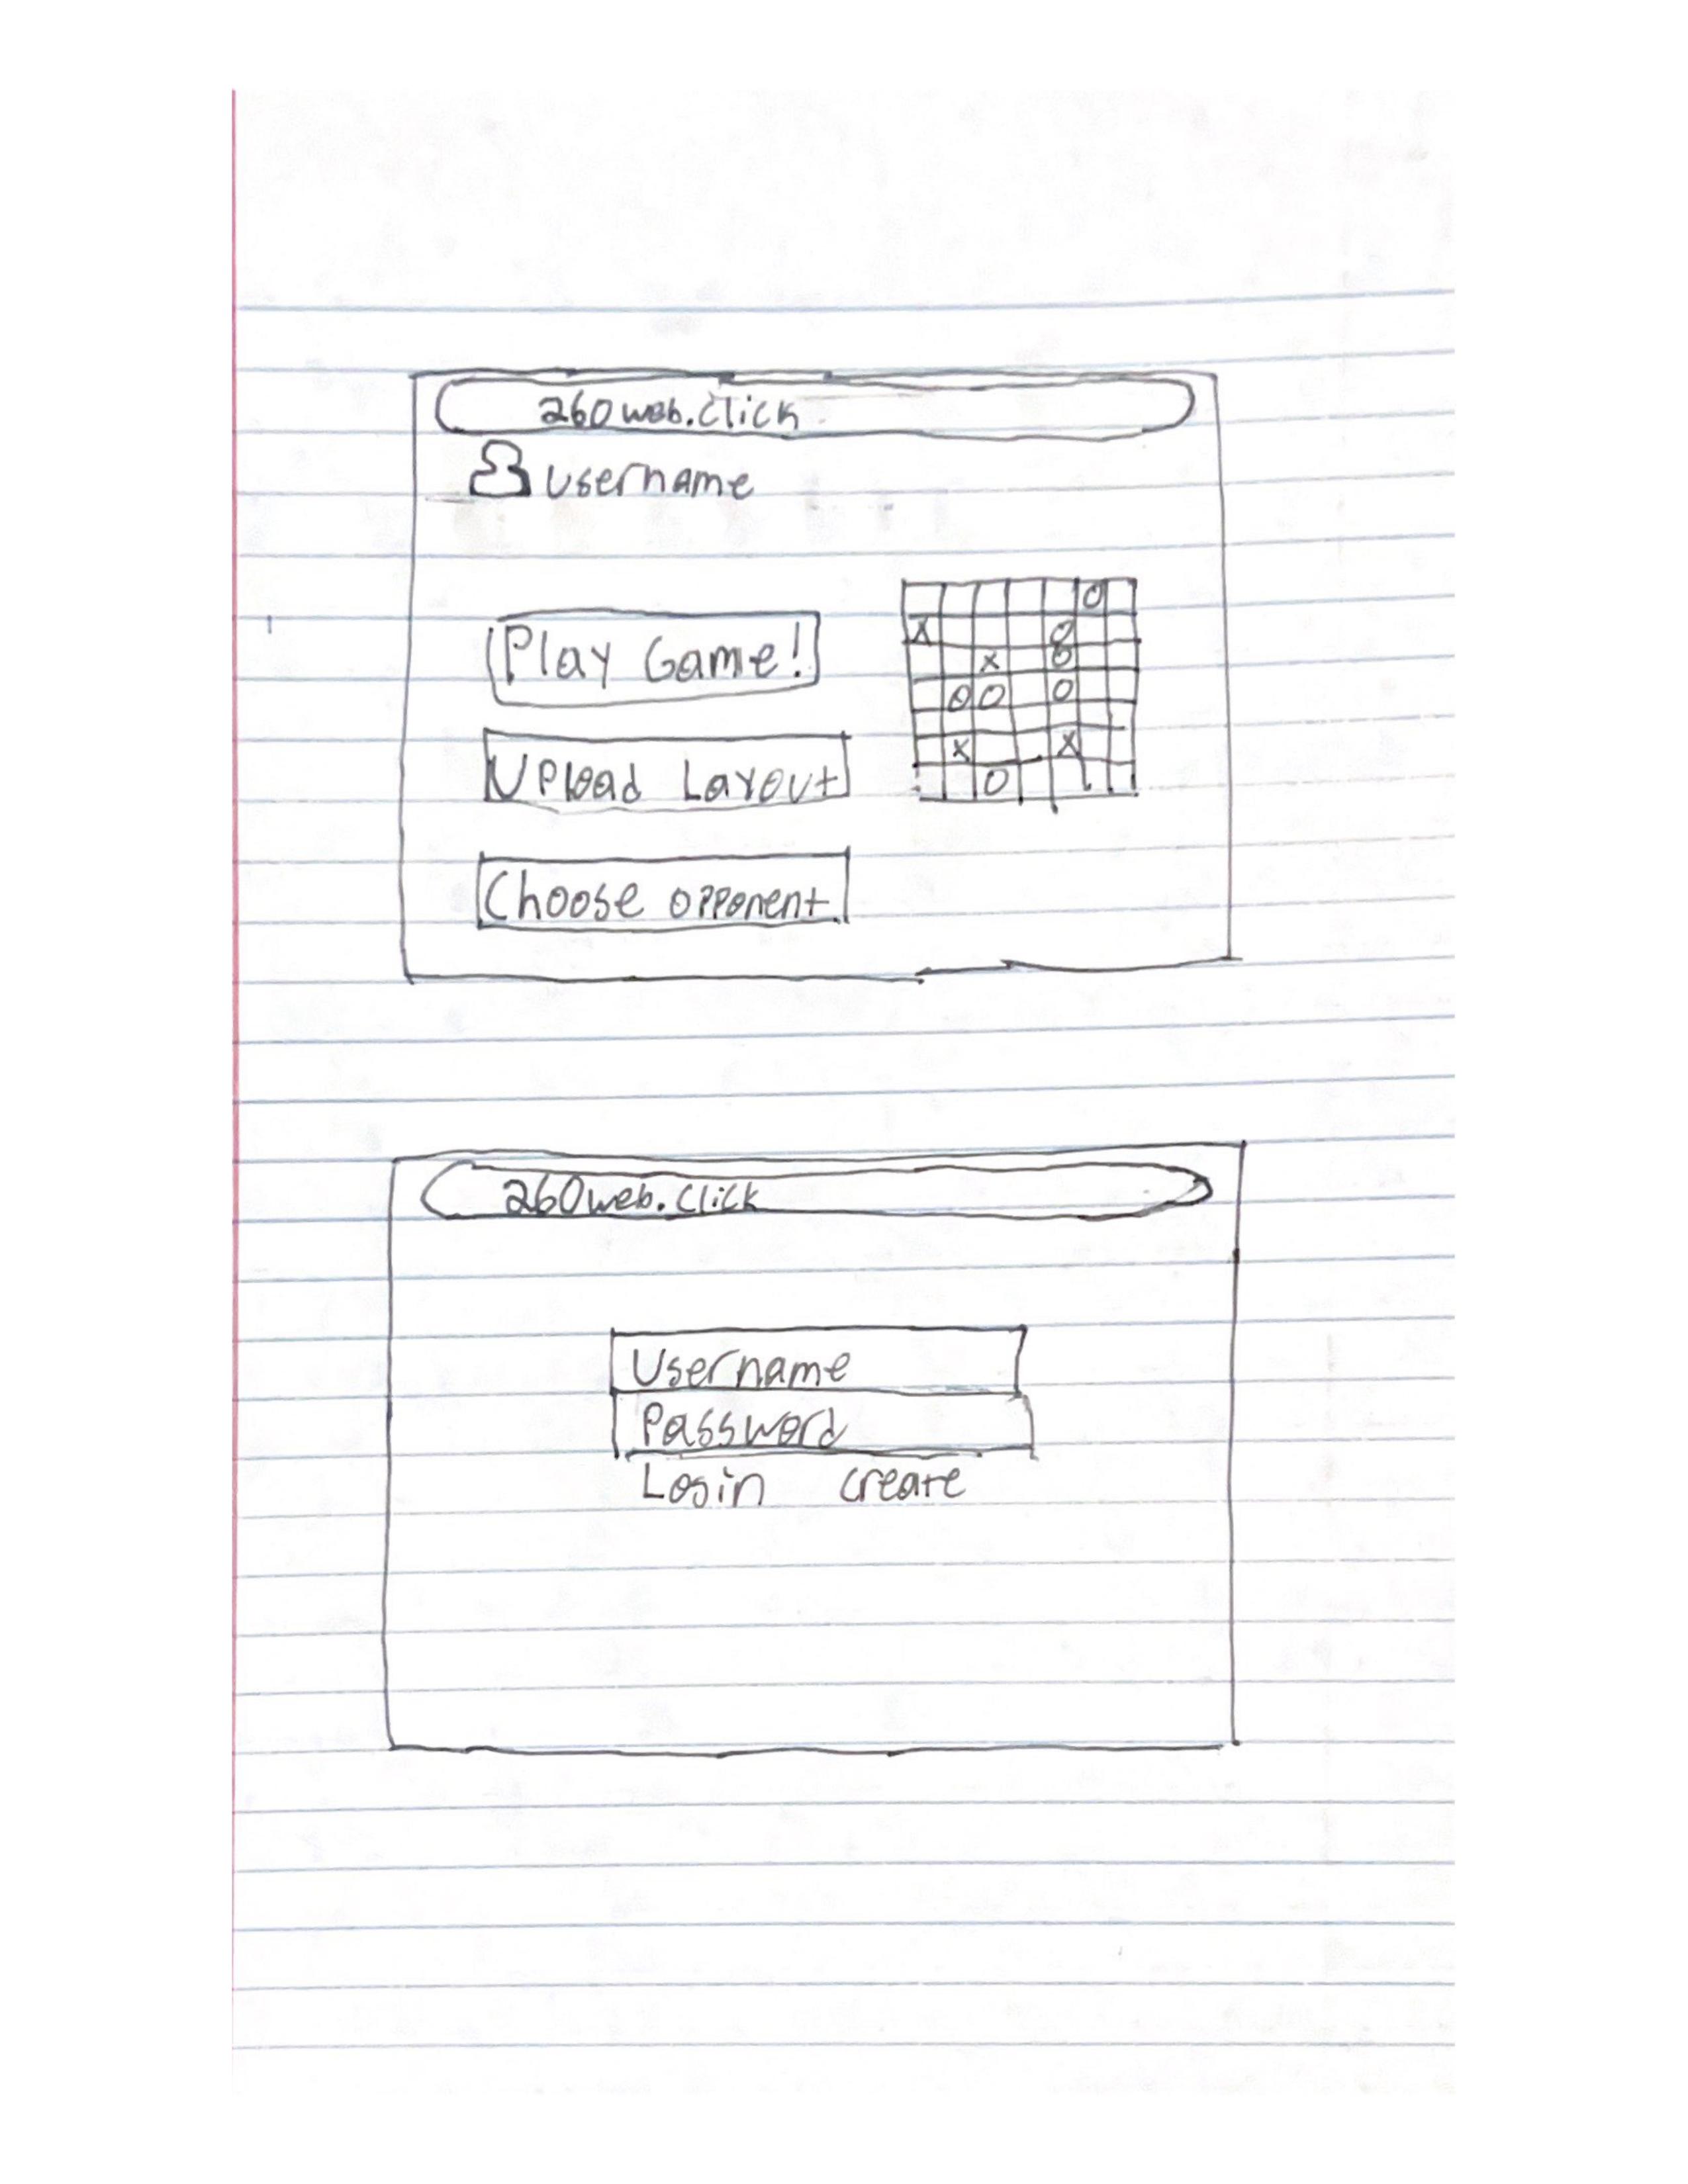 260web.click
username
O
Play Game!
X O
X O
O O O
Upload Layout
X X
O
Choose opponent
260web.click
Username
Password
Login create